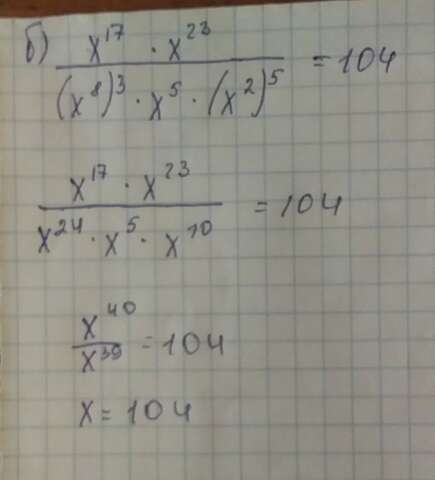 б) x¹⁷ · x²³ / (x⁸)³ · x⁵ · (x²)⁵ = 104
x¹⁷ · x²³ / x²⁴ · x⁵ · x¹⁰ = 104
x⁴⁰ / x³⁹ = 104
x = 104